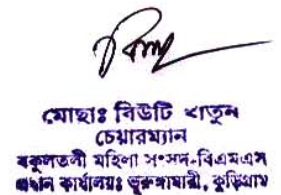 মোছাঃ বিউটি খাতুন
চেয়ারম্যান
বকুলতলী মহিলা সংসদ-বিএমএস
প্রধান কার্যালয়ঃ ভূরুঙ্গামারী, কুড়িগ্রাম